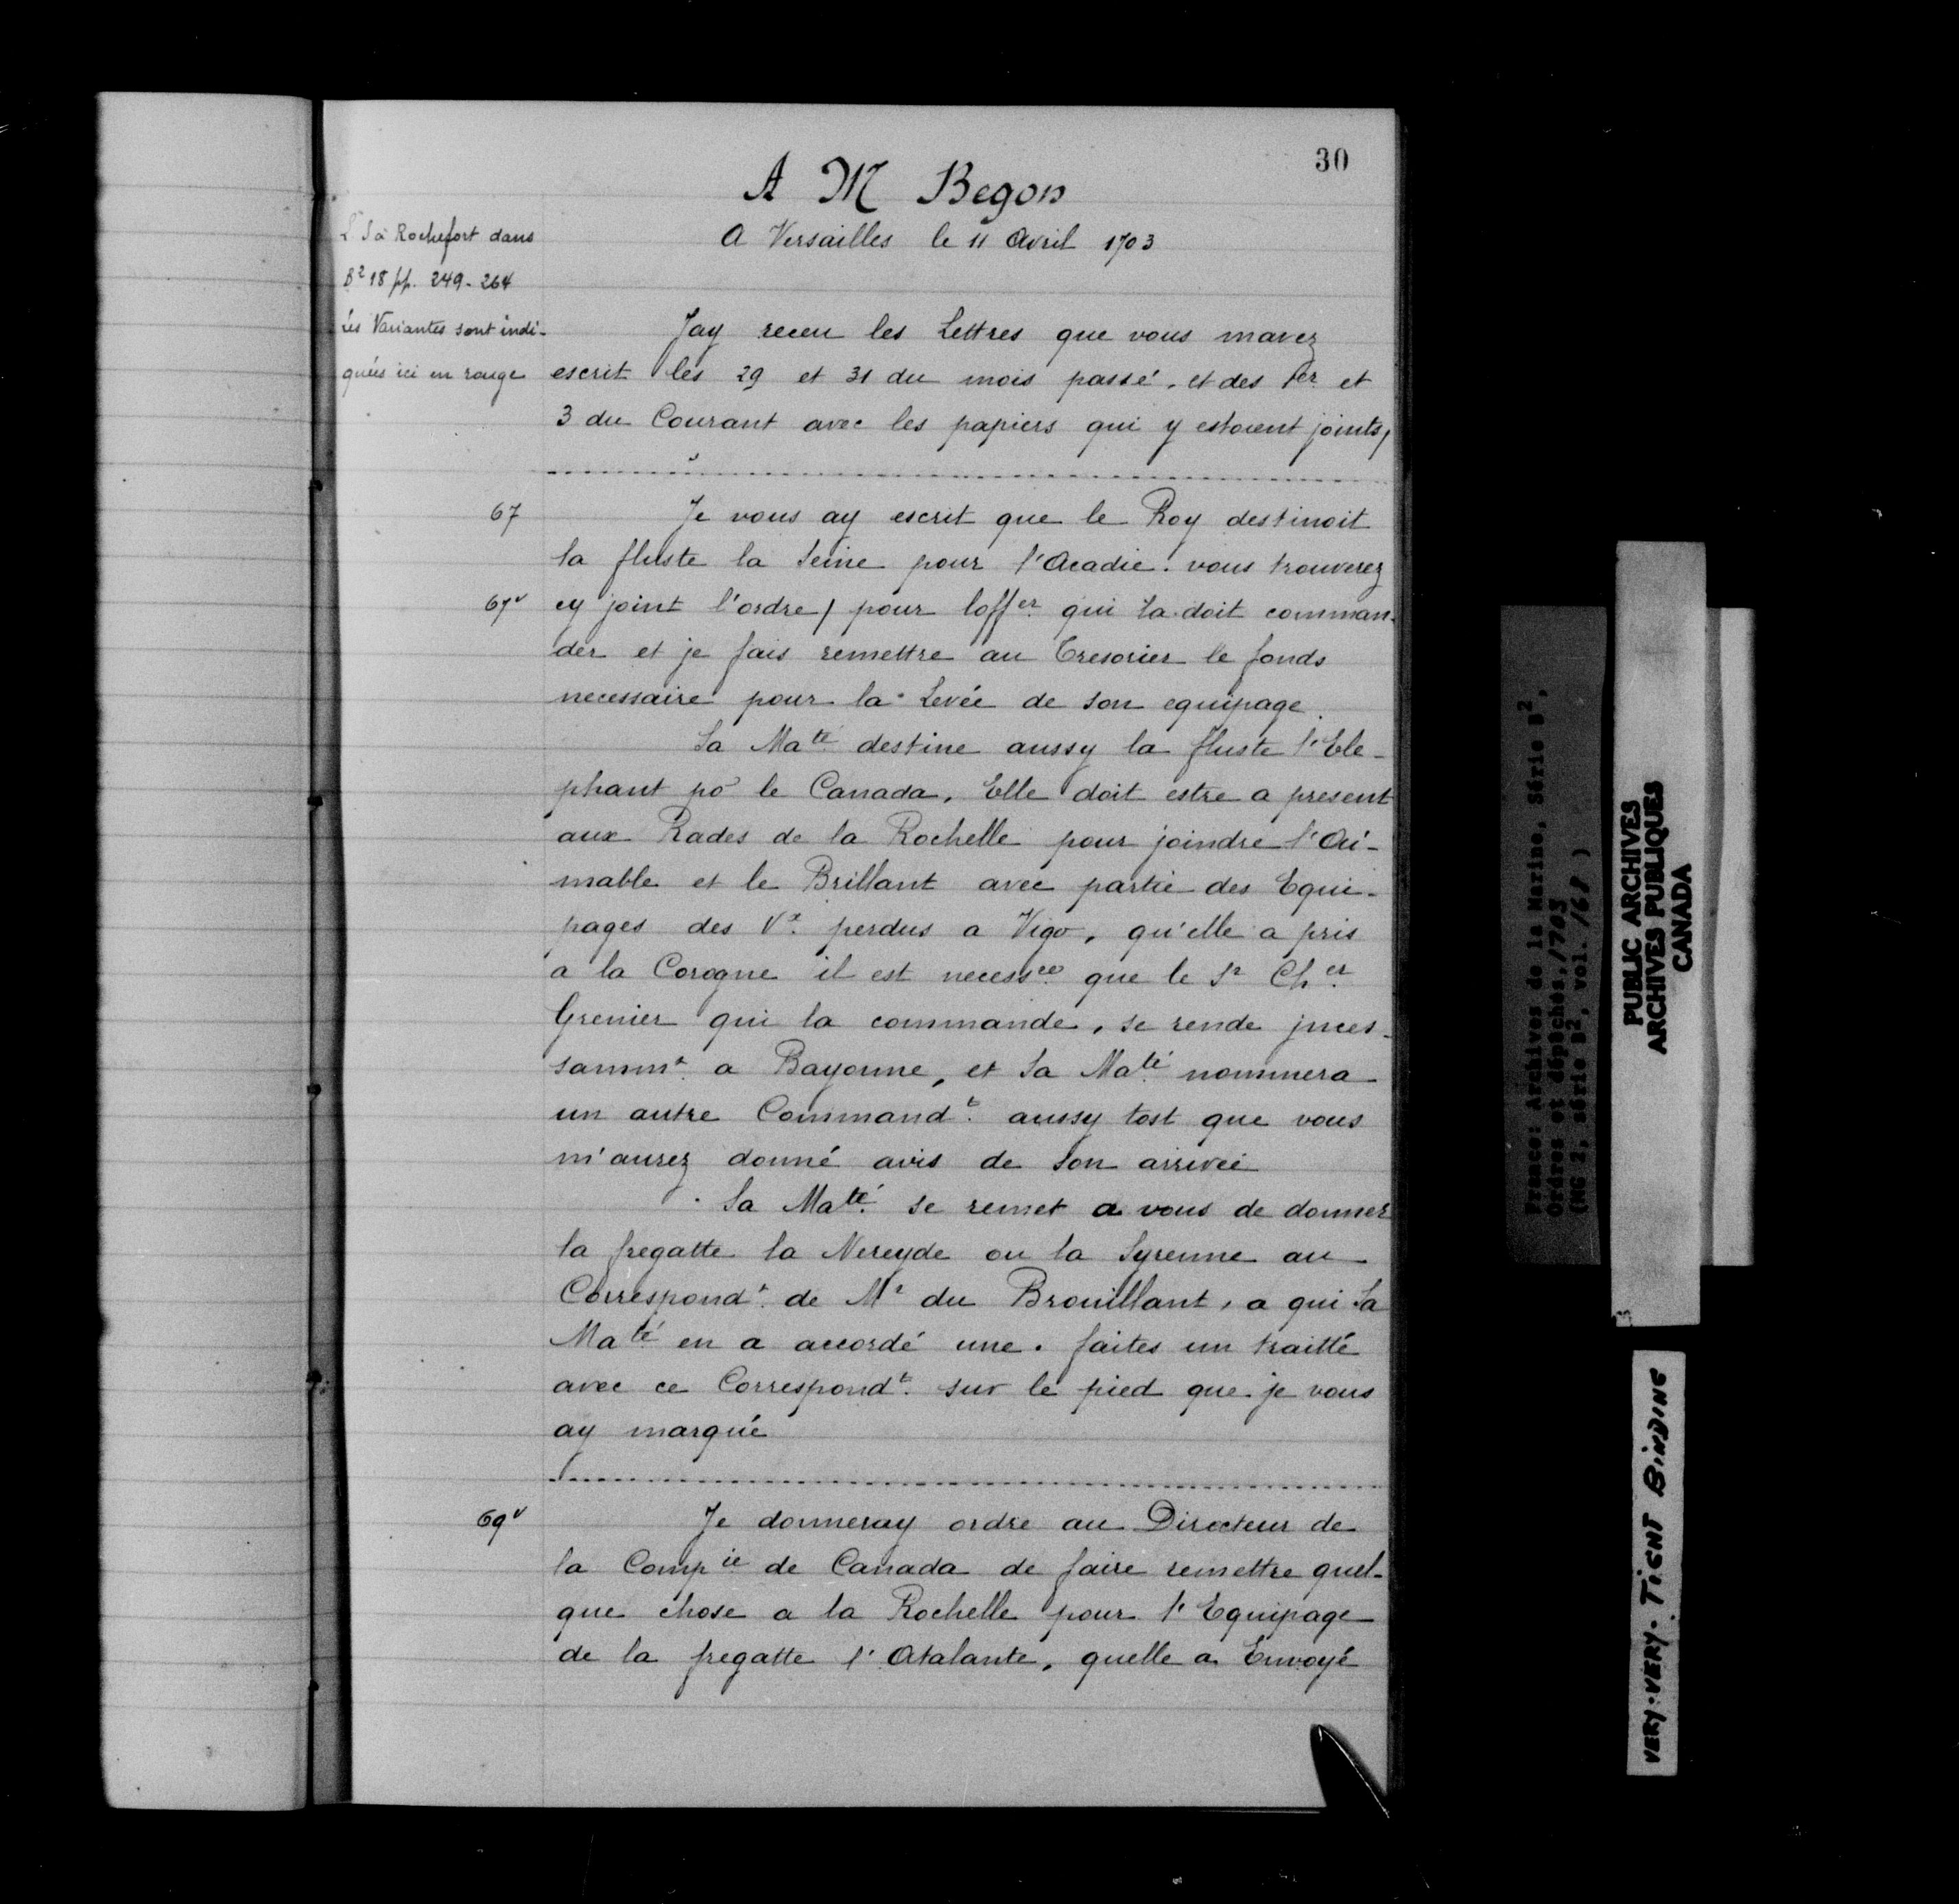 30
A M Begon
A Versailles le 11 Avril 1703
à Rochefort dans
B² 18 pp. 249-264
Les Variantes sont indi-
quées ici en rouge
Jay receu les Lettres que vous mavez
escrit les 29 et 31 du mois passé, et des 1er et
3 du Courant avec les papiers qui y estoient joints,
67
Je vous ay escrit que le Roy destinoit
la fluste la Seine pour l'Acadie. vous trouverez
67v
cy joint l'ordre / pour loffer qui la doit comman-
der et je fais remettre au Tresorier le fonds
necessaire pour la Levée de son equipage.
Sa Maté destine aussy la fluste l'Ele-
phant po le Canada, Elle doit estre a present
aux Rades de la Rochelle pour joindre l'Ai-
mable et le Brillant avec partie des Equi-
pages des Vx perdus a Vigo, qu'elle a pris
a la Corogne il est necessre que le Sr Cher
Grenier qui la commande, se rende jnces-
sammt a Bayonne, et Sa Maté nommera
un autre Commandt aussy tost que vous
m'aurez donné avis de son arrivée
Sa Maté se remet a vous de donner
la fregatte la Nereyde ou la Syrenne au
Correspondt de Mr du Brouillant, a qui Sa
Maté en a accordé une. faites un traitté
avec ce Correspondt sur le pied que je vous
ay marqué
69v
Je donneray ordre au Directeur de
la Compie de Canada de faire remettre quel-
que chose a la Rochelle pour l'Equipage
de la fregatte l'Atalante, quelle a Envoyé
France: Archives de la Marine, Série B²,
Ordres et dépêches, 1703
(MG 2, série B², vol. 168)
PUBLIC ARCHIVES
ARCHIVES PUBLIQUES
CANADA
VERY-VERY-TIGHT BINDING